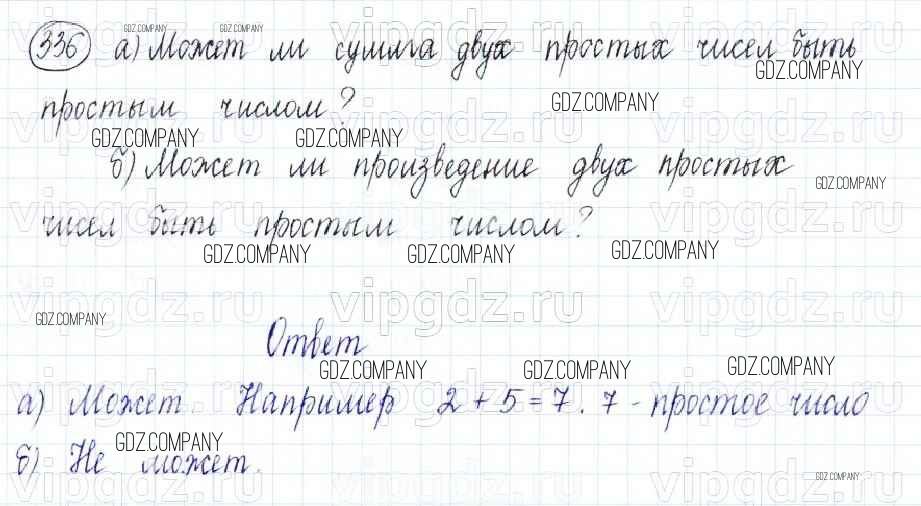 336 а) Может ли сумма двух простых чисел быть
простым числом?
б) Может ли произведение двух простых
чисел быть простым числом?
Ответ
а) Может. Например 2 + 5 = 7. 7 - простое число
б) Не может.
GDZ.COMPANY
vipgdz.ru